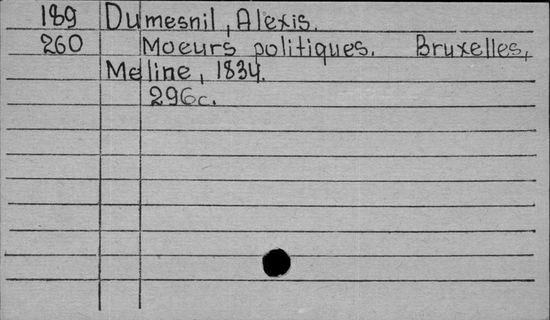 189 Dumesnil, Alexis.
260 Moeurs politiques. Bruxelles,
Meline, 1834.
296c.